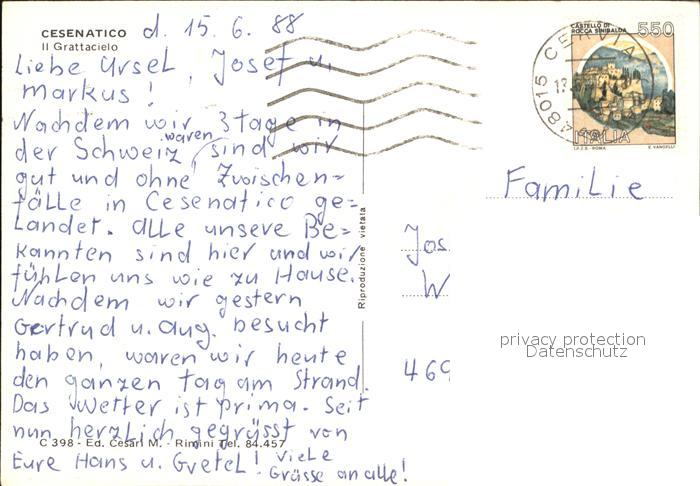 CESENATICO d. 15. 6. 88
Il Grattacielo
Liebe Ursel, Josef u.
Markus!
Nachdem wir 3 Tage in
der Schweiz waren, sind wir
gut und ohne Zwischen=
fälle in Cesenatico ge=
Landet. Alle unsere Be=
kannten sind hier und wir
fühlen uns wie zu Hause.
Nachdem wir gestern
Gertrud u. Aug. besucht
haben, waren wir heute
den ganzen Tag am Strand.
Das Wetter ist prima. Seit
nun herzlich gegrüsst von
C 398 - Ed. Cesari M. - Rimini Tel. 84.457
Eure Hans u. Gretel! Viele
Grüsse an alle!
Riproduzione vietata
CASTELLO DI
ROCCA SINIBALDA
550
ITALIA
I.P.Z.S. - ROMA E. VANGELLI
48015 CERVIA
Familie
Jos
W
469
privacy protection
Datenschutz